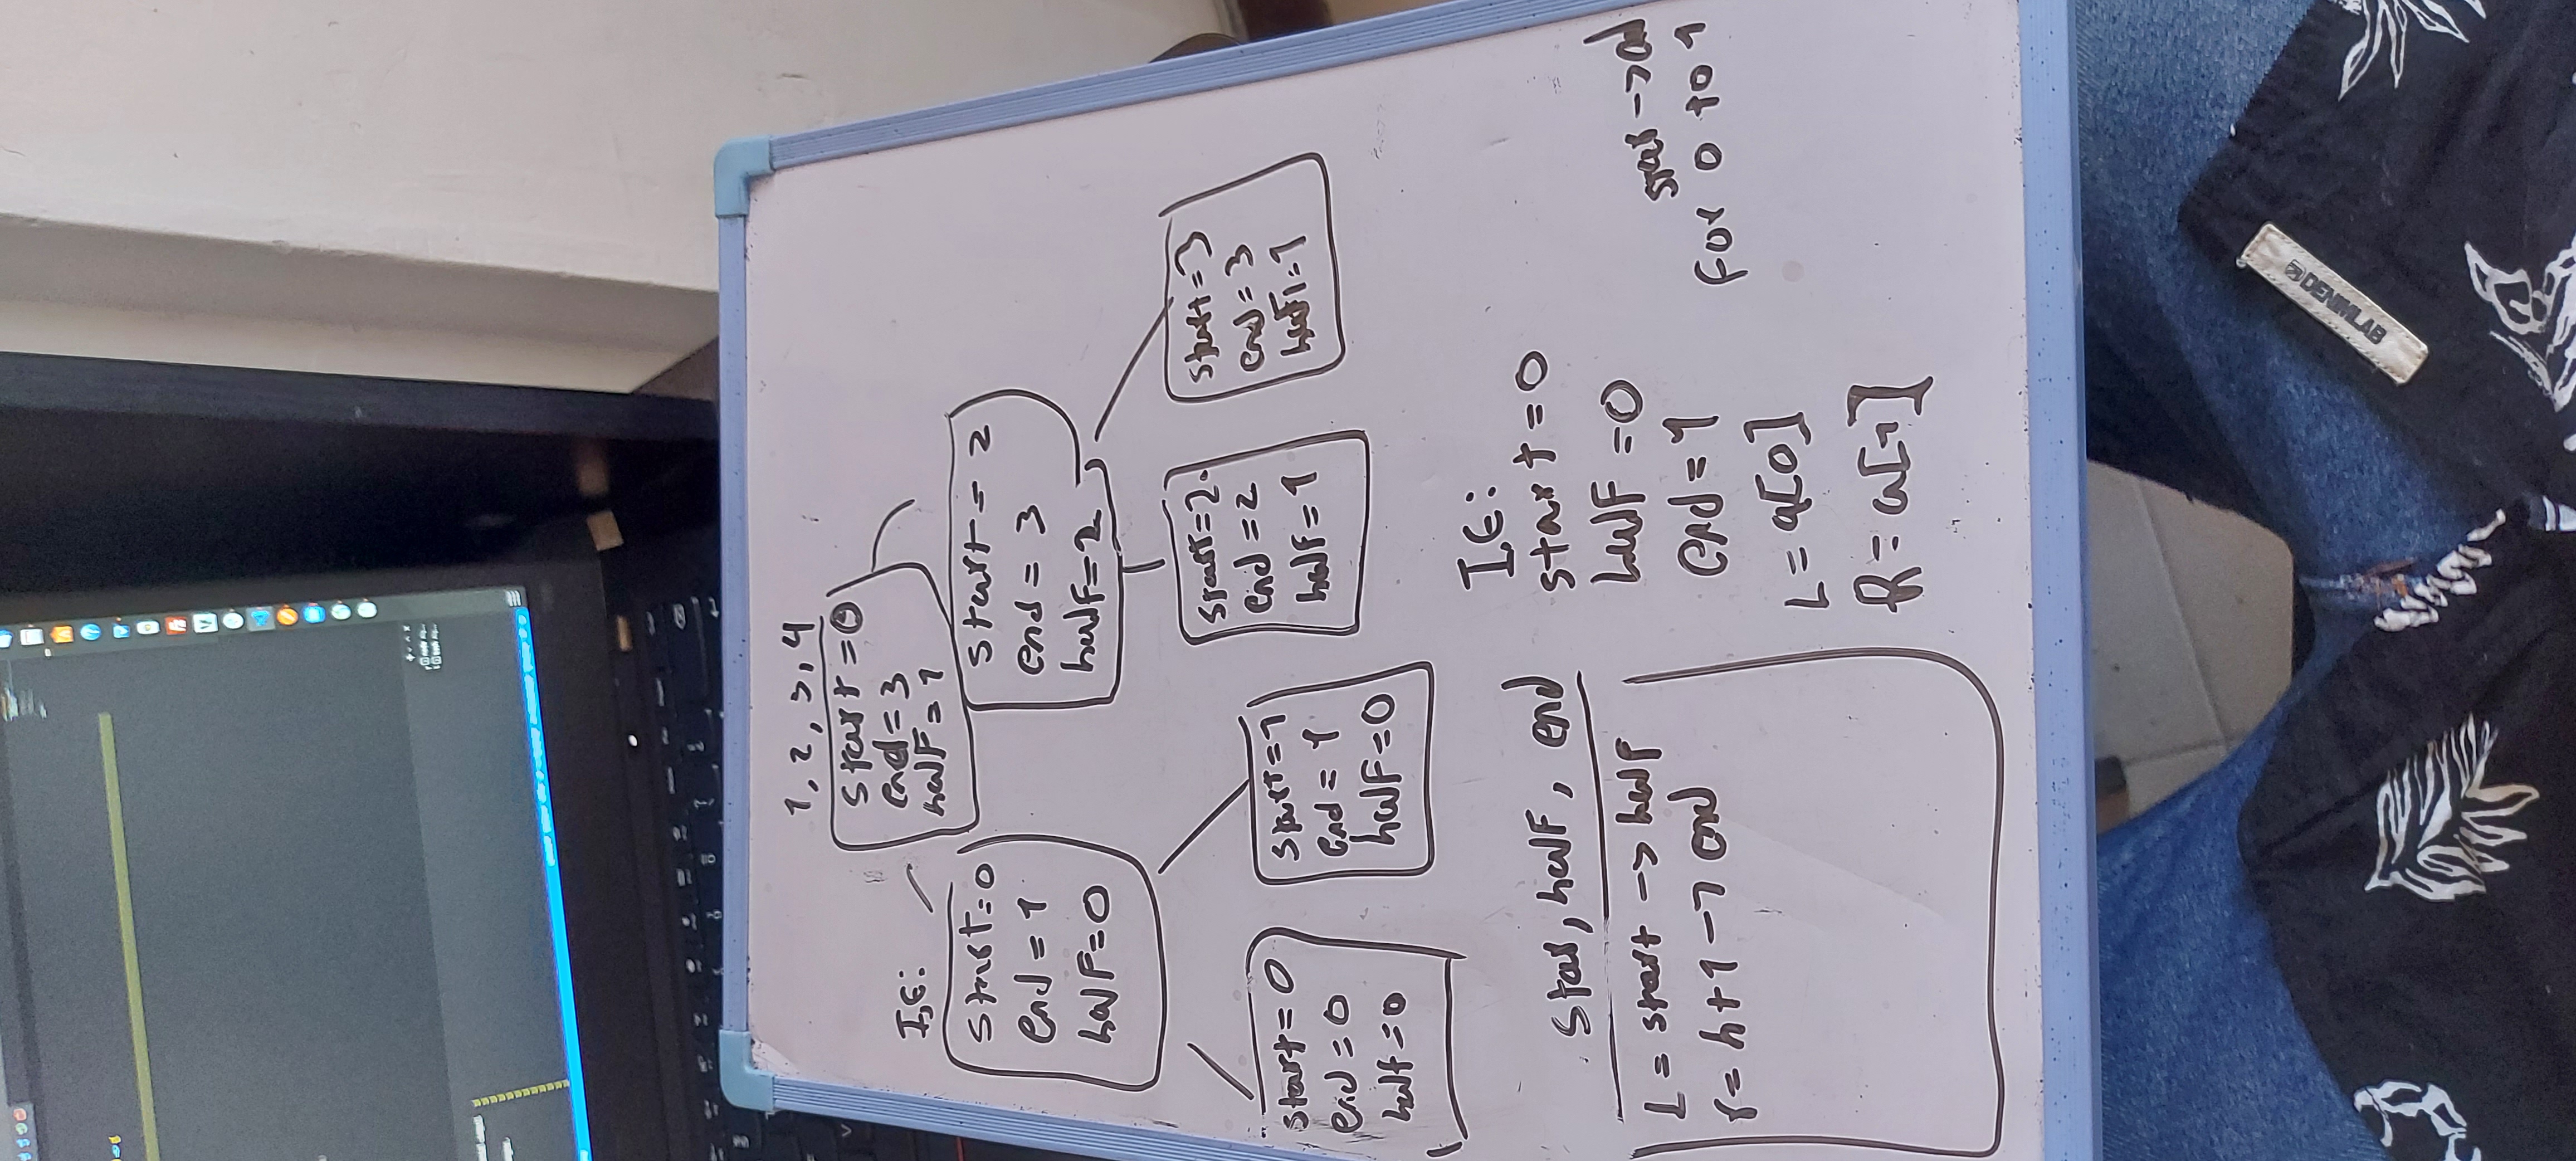 1, 2, 3, 4
start = 0
end = 3
half = 1
I,E:
start = 0
end = 1
half = 0
start = 2
end = 3
half = 2
start = 0
end = 0
half = 0
start = 1
end = 1
half = 0
start = 2
end = 2
half = 1
start = 3
end = 3
half = 1
star, half, end
L = start -> half
r = h+1 -> end
I,E:
start = 0
half = 0
end = 1
L = a[0]
R = a[1]
star -> end
For 0 to 1
DENIMLAB